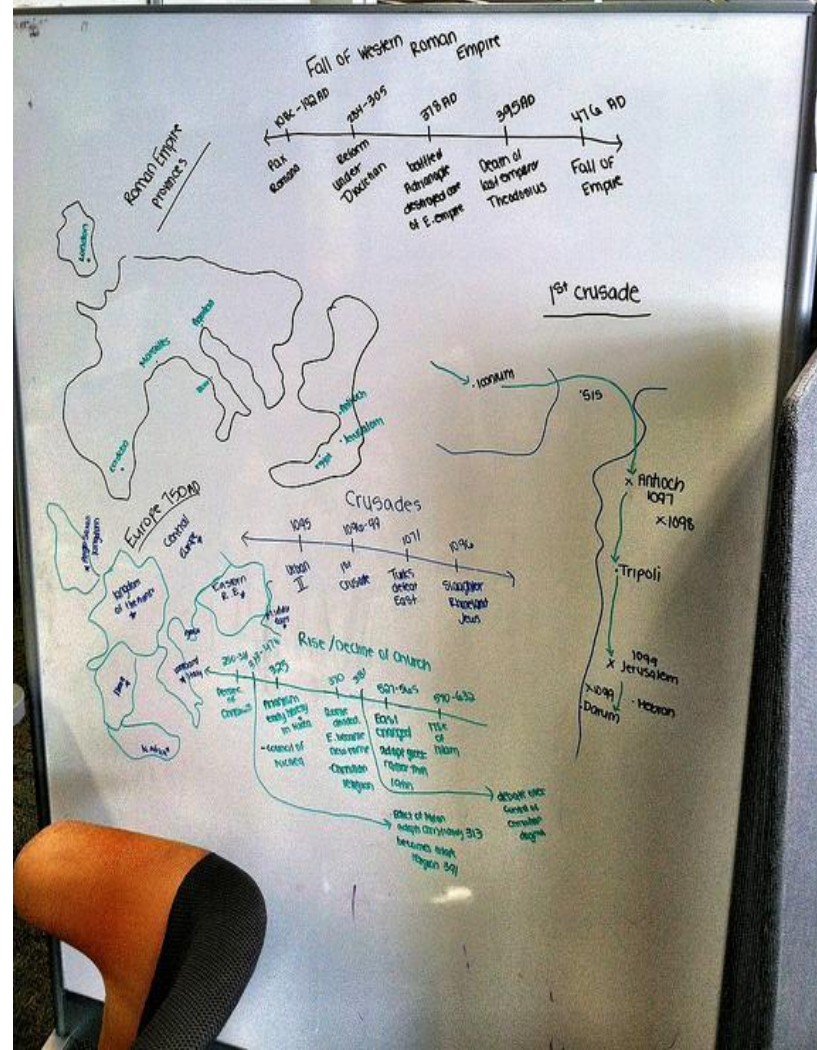 Fall of Western Roman Empire
108C-192AD
284-305
378AD
395AD
476 AD
Pax
Romana
Reform
under
Diocletian
battle of
Adrianople
destroyed core
of E. empire
Death of
last emperor
Theodosius
Fall of
Empire
Roman Empire
provinces
London
Marseilles
Rome
Cordoba
Antioch
Jerusalem
Egypt
1st Crusade
Iconium
SIS
Antioch
1097
x1098
Tripoli
1099
Jerusalem
x1099
Darum
Hebron
Europe 750AD
Anglo Saxon
Kingdom
Central
Europe
Kingdom
of the
Eastern
R.E.
Lombard
Italy
Crusades
1095
1096-99
1071
1096
Urban
II
1st
Crusade
Turks
defeat
East
Slaughter
Rhineland
Jews
Rise/Decline of Church
325
370
381
527-565
570-632
Arianism
early heresy
-Council of
Nicaea
Rome
divided.
E. become
new Rome
Christian
religion
East
changed
adopt greek
rather than
latin
rise
of
Islam
debate over
control of
christian
dogma
Edict of Milan
adopts Christianity 313
becomes state
religion 391